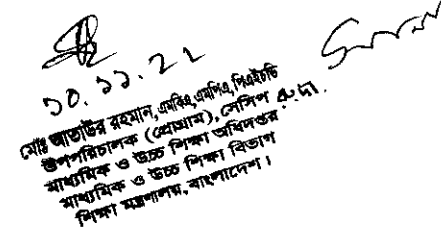 ১০.১১.২১
মোঃ আতাউর রহমান, এমবিএ,এমপিএ, পিএইচডি
উপপরিচালক (প্রোগ্রাম), সেসিপ
মাধ্যমিক ও উচ্চ শিক্ষা অধিদপ্তর
মাধ্যমিক ও উচ্চ শিক্ষা বিভাগ
শিক্ষা মন্ত্রণালয়, বাংলাদেশ।